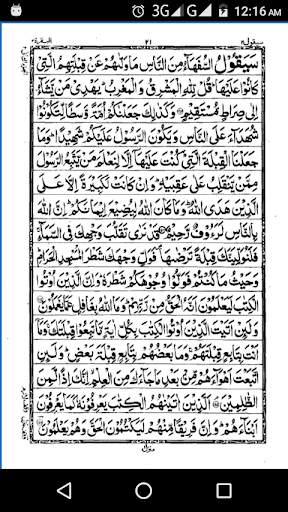 3G 12:16 AM
سيقول ٢ ٢١ البقرة ٢
سَيَقُوْلُ السُّفَهَآءُ مِنَ النَّاسِ مَا وَلّٰىهُمْ عَنْ قِبْلَتِهِمُ الَّتِيْ
كَانُوْا عَلَيْهَا ؕ قُلْ لِّلّٰهِ الْمَشْرِقُ وَالْمَغْرِبُ ؕ يَهْدِيْ مَنْ يَّشَآءُ
اِلٰى صِرَاطٍ مُّسْتَقِيْمٍ وَكَذٰلِكَ جَعَلْنٰكُمْ اُمَّةً وَّسَطًا لِّتَكُوْنُوْا
شُهَدَآءَ عَلَى النَّاسِ وَيَكُوْنَ الرَّسُوْلُ عَلَيْكُمْ شَهِيْدًا ؕ وَمَا
جَعَلْنَا الْقِبْلَةَ الَّتِيْ كُنْتَ عَلَيْهَاۤ اِلَّا لِنَعْلَمَ مَنْ يَّتَّبِعُ الرَّسُوْلَ
مِمَّنْ يَّنْقَلِبُ عَلٰى عَقِبَيْهِ ؕ وَاِنْ كَانَتْ لَكَبِيْرَةً اِلَّا عَلَى
الَّذِيْنَ هَدَى اللّٰهُ ؕ وَمَا كَانَ اللّٰهُ لِيُضِيْعَ اِيْمَانَكُمْ ؕ اِنَّ اللّٰهَ
بِالنَّاسِ لَرَءُوْفٌ رَّحِيْمٌ قَدْ نَرٰى تَقَلُّبَ وَجْهِكَ فِي السَّمَآءِ ۚ
فَلَنُوَلِّيَنَّكَ قِبْلَةً تَرْضٰىهَا ۪ فَوَلِّ وَجْهَكَ شَطْرَ الْمَسْجِدِ الْحَرَامِ ؕ
وَحَيْثُ مَا كُنْتُمْ فَوَلُّوْا وُجُوْهَكُمْ شَطْرَهٗ ؕ وَاِنَّ الَّذِيْنَ اُوْتُوا
الْكِتٰبَ لَيَعْلَمُوْنَ اَنَّهُ الْحَقُّ مِنْ رَّبِّهِمْ ؕ وَمَا اللّٰهُ بِغَافِلٍ عَمَّا يَعْمَلُوْنَ
وَلَئِنْ اَتَيْتَ الَّذِيْنَ اُوْتُوا الْكِتٰبَ بِكُلِّ اٰيَةٍ مَّا تَبِعُوْا قِبْلَتَكَ ۚ وَمَاۤ
اَنْتَ بِتَابِعٍ قِبْلَتَهُمْ ۚ وَمَا بَعْضُهُمْ بِتَابِعٍ قِبْلَةَ بَعْضٍ ؕ وَلَئِنِ
اتَّبَعْتَ اَهْوَآءَهُمْ مِّنْۢ بَعْدِ مَا جَآءَكَ مِنَ الْعِلْمِ ۙ اِنَّكَ اِذًا لَّمِنَ
الظّٰلِمِيْنَ اَلَّذِيْنَ اٰتَيْنٰهُمُ الْكِتٰبَ يَعْرِفُوْنَهٗ كَمَا يَعْرِفُوْنَ
اَبْنَآءَهُمْ ؕ وَاِنَّ فَرِيْقًا مِّنْهُمْ لَيَكْتُمُوْنَ الْحَقَّ وَهُمْ يَعْلَمُوْنَ
منزل